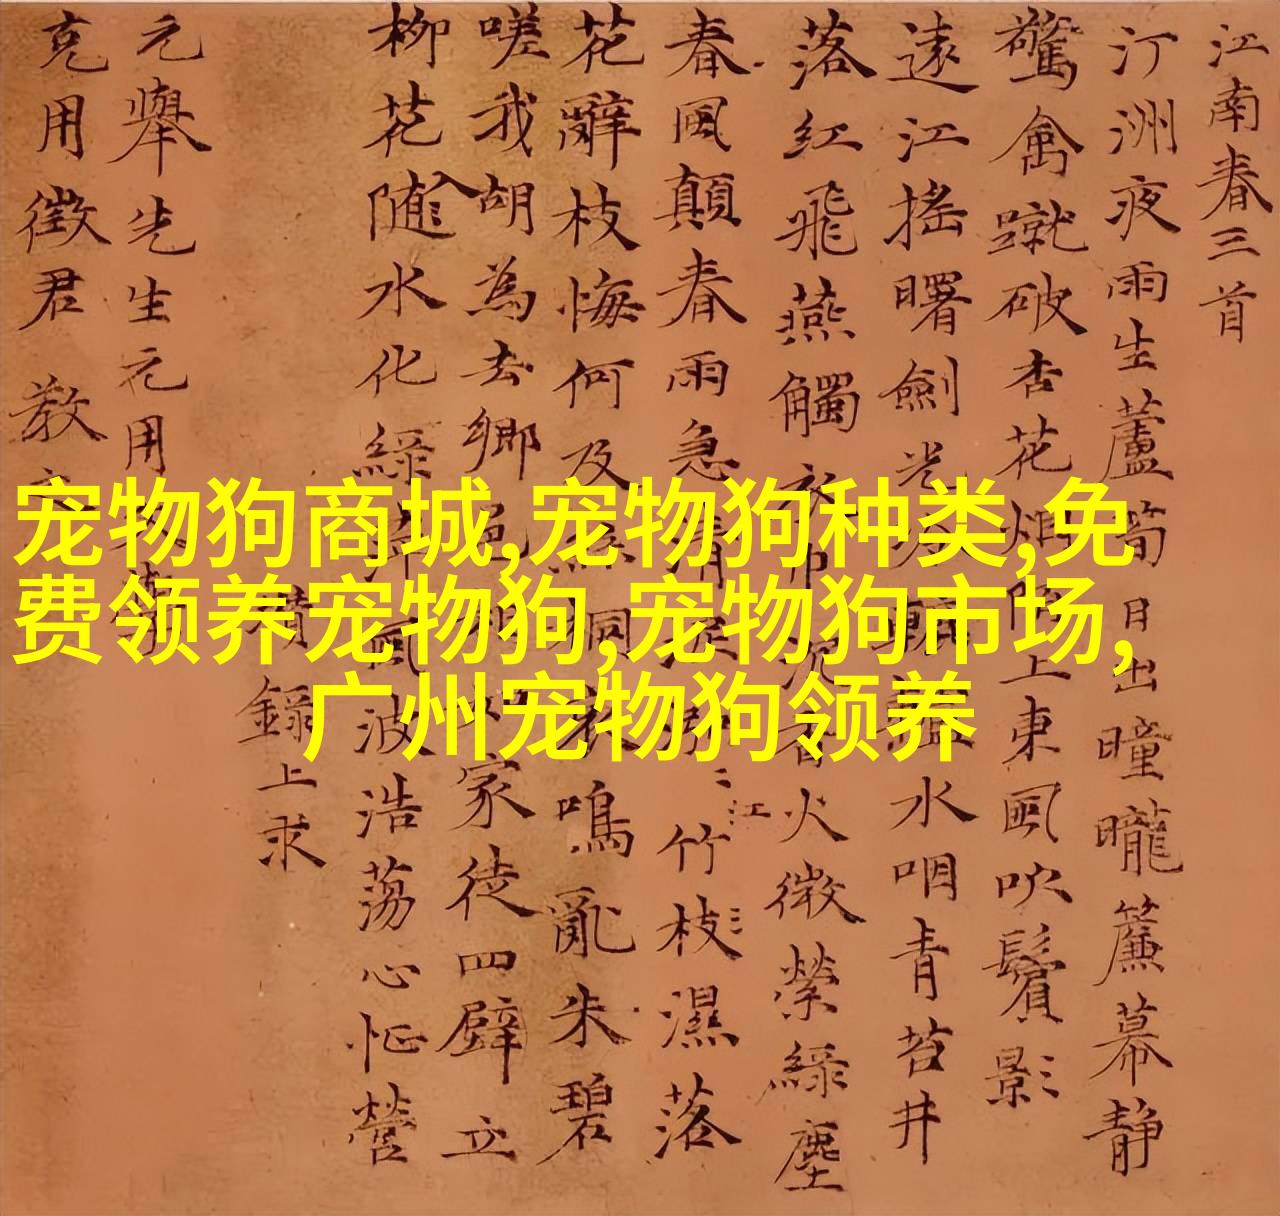 宠物狗商城,宠物狗种类,免
费领养宠物狗,宠物狗市场,
广州宠物狗领养
江南春三首
汀洲夜雨生蘆筍日出曈曨簾幕静
驚禽蹴破杏花烟陌上東風吹鬢影
遠江搖曙劍光水咽青苔井
落紅飛燕觸巾沉香火微縈緑塵
春風顛春雨急清江竹枝濕落
花辭枝悔何及絲桐哀鳴亂朱碧
嗟我胡為去鄉邑相如家徒四壁立
柳花入随水化緑萍風波浩蕩心怔營
瓚錄上求
元舉先生元用
克用徵君 教